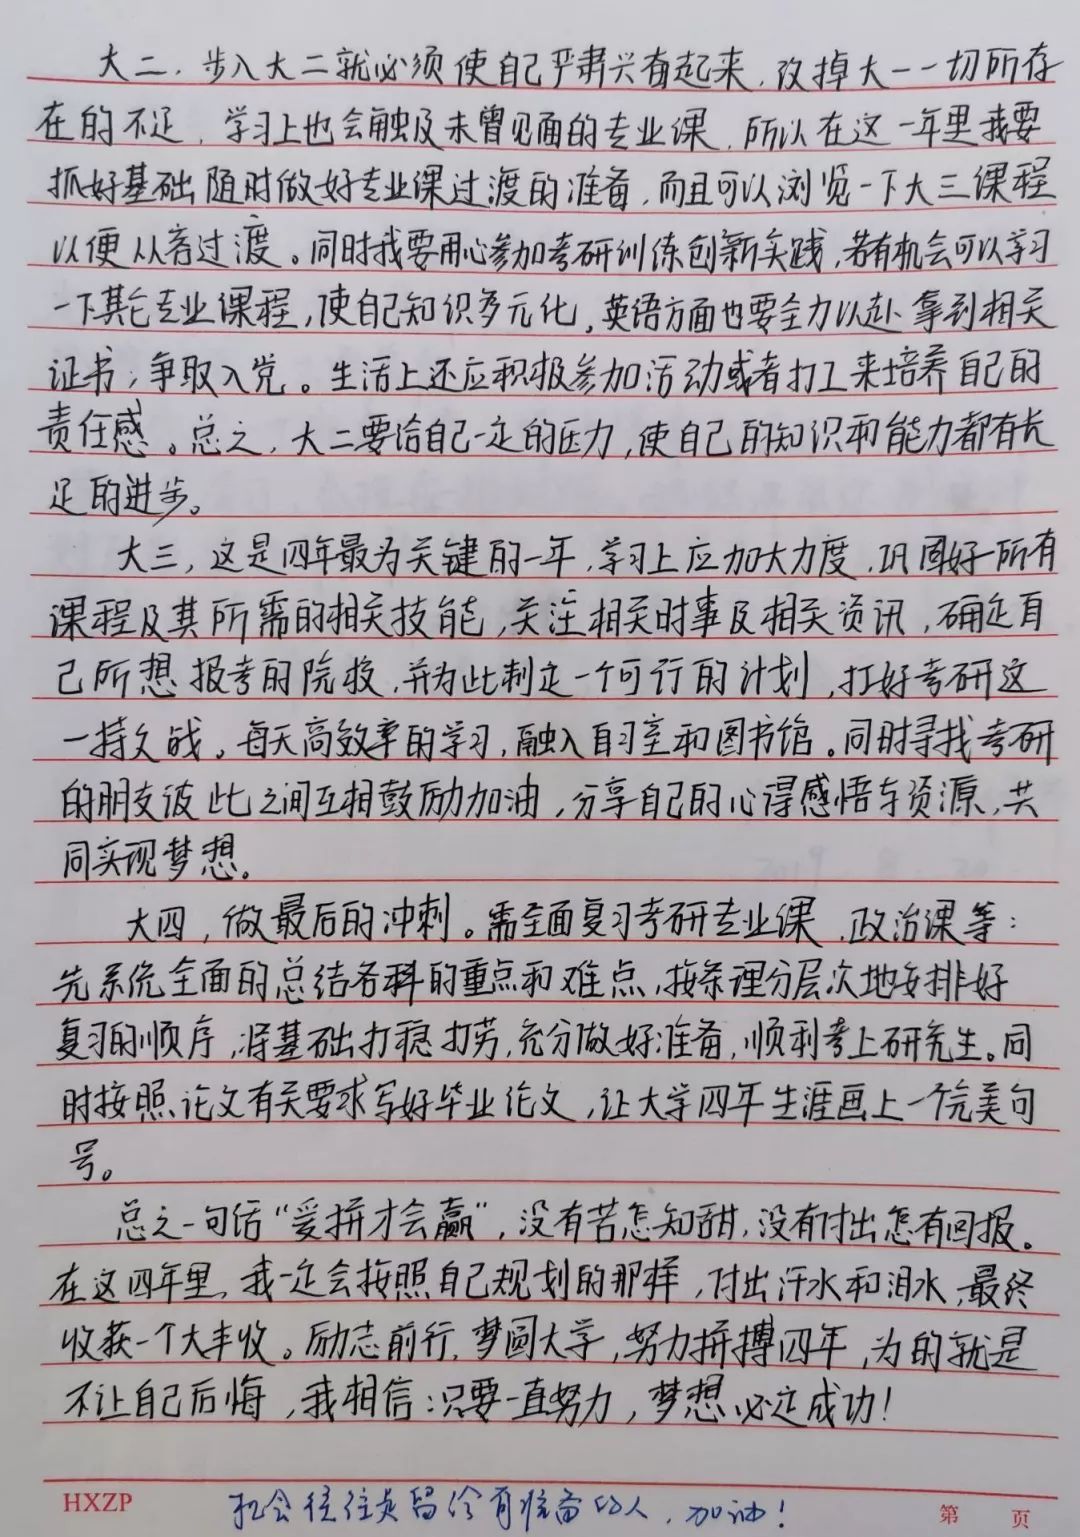 大二，步入大二就必须使自己严肃兴奋起来，改掉大一一切所存
在的不足，学习上也会触及未曾见面的专业课，所以在这一年里我要
抓好基础随时做好专业课过渡的准备，而且可以浏览一下大三课程
以便从容过渡。同时我要用心参加考研训练创新实践，若有机会可以学习
一下其它专业课程，使自己知识多元化，英语方面也要全力以赴拿到相关
证书，争取入党。生活上还应积极参加活动或者打工来培养自己的
责任感。总之，大二要给自己一定的压力，使自己的知识和能力都有长
足的进步。
大三，这是四年最为关键的一年，学习上应加大力度，巩固好所有
课程及其所需的相关技能，关注相关时事及相关资讯，确定自
己所想报考的院校，并为此制定一个可行的计划，打好考研这
一持久战。每天高效率的学习，融入自习室和图书馆。同时寻找考研
的朋友彼此之间互相鼓励加油，分享自己的心得感悟与资源，共
同实现梦想。
大四，做最后的冲刺。需全面复习考研专业课，政治课等：
先系统全面的总结各科的重点和难点，按条理分层次地安排好
复习的顺序，将基础打稳打劳，充分做好准备，顺利考上研究生。同
时按照论文有关要求写好毕业论文，让大学四年生涯画上一个完美句
号。
总之一句话“爱拼才会赢”，没有苦怎知甜，没有付出怎有回报。
在这四年里，我一定会按照自己规划的那样，付出汗水和泪水，最终
收获一个大丰收。励志前行，梦圆大学，努力拼搏四年，为的就是
不让自己后悔，我相信：只要一直努力，梦想必定成功！
HXZP 机会往往是留给有准备的人，加油！ 第 页